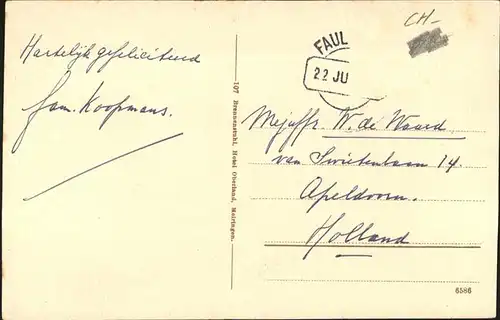 Hartelijk gefeliciteerd
fam. Koopmans.
107 Brennenstuhl, Hotel Oberland, Meiringen.
CH-
FAUL
22 JU
Mejuffr. W. de Waard
van Swietenlaan 14.
Apeldoorn.
Holland
6586